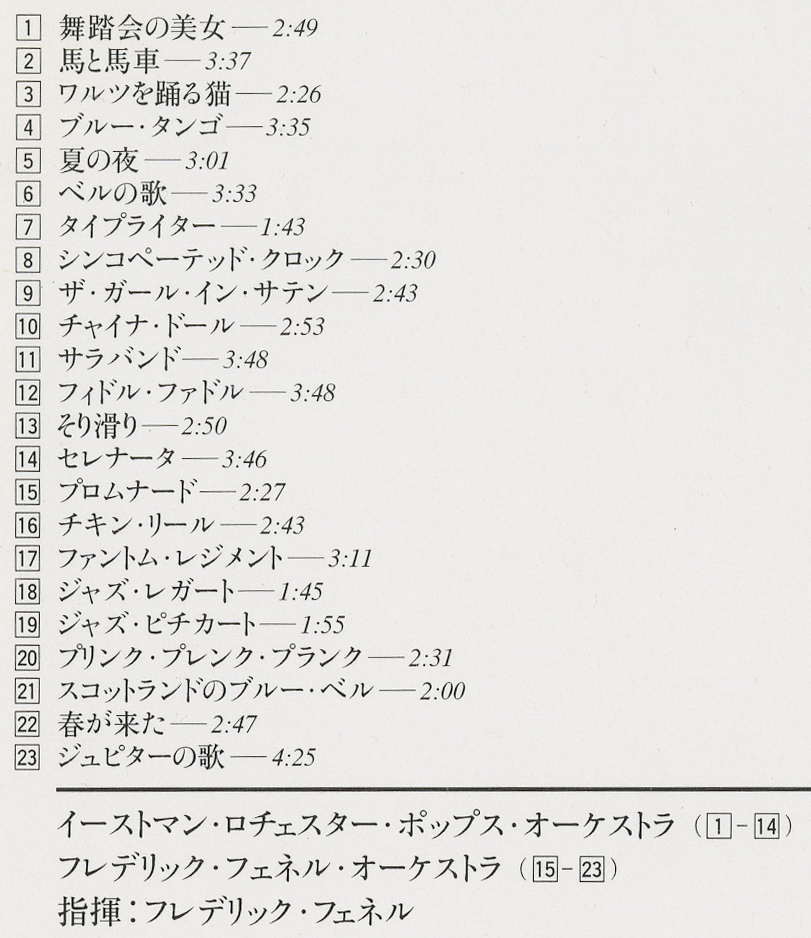 1 舞踏会の美女—2:49
2 馬と馬車—3:37
3 ワルツを踊る猫—2:26
4 ブルー・タンゴ—3:35
5 夏の夜—3:01
6 ベルの歌—3:33
7 タイプライター—1:43
8 シンコペーテッド・クロック—2:30
9 ザ・ガール・イン・サテン—2:43
10 チャイナ・ドール—2:53
11 サラバンド—3:48
12 フィドル・ファドル—3:48
13 そり滑り—2:50
14 セレナータ—3:46
15 プロムナード—2:27
16 チキン・リール—2:43
17 ファントム・レジメント—3:11
18 ジャズ・レガート—1:45
19 ジャズ・ピチカート—1:55
20 プリンク・プレンク・プランク—2:31
21 スコットランドのブルー・ベル—2:00
22 春が来た—2:47
23 ジュピターの歌—4:25
イーストマン・ロチェスター・ポップス・オーケストラ（1–14）
フレデリック・フェネル・オーケストラ（15–23）
指揮：フレデリック・フェネル